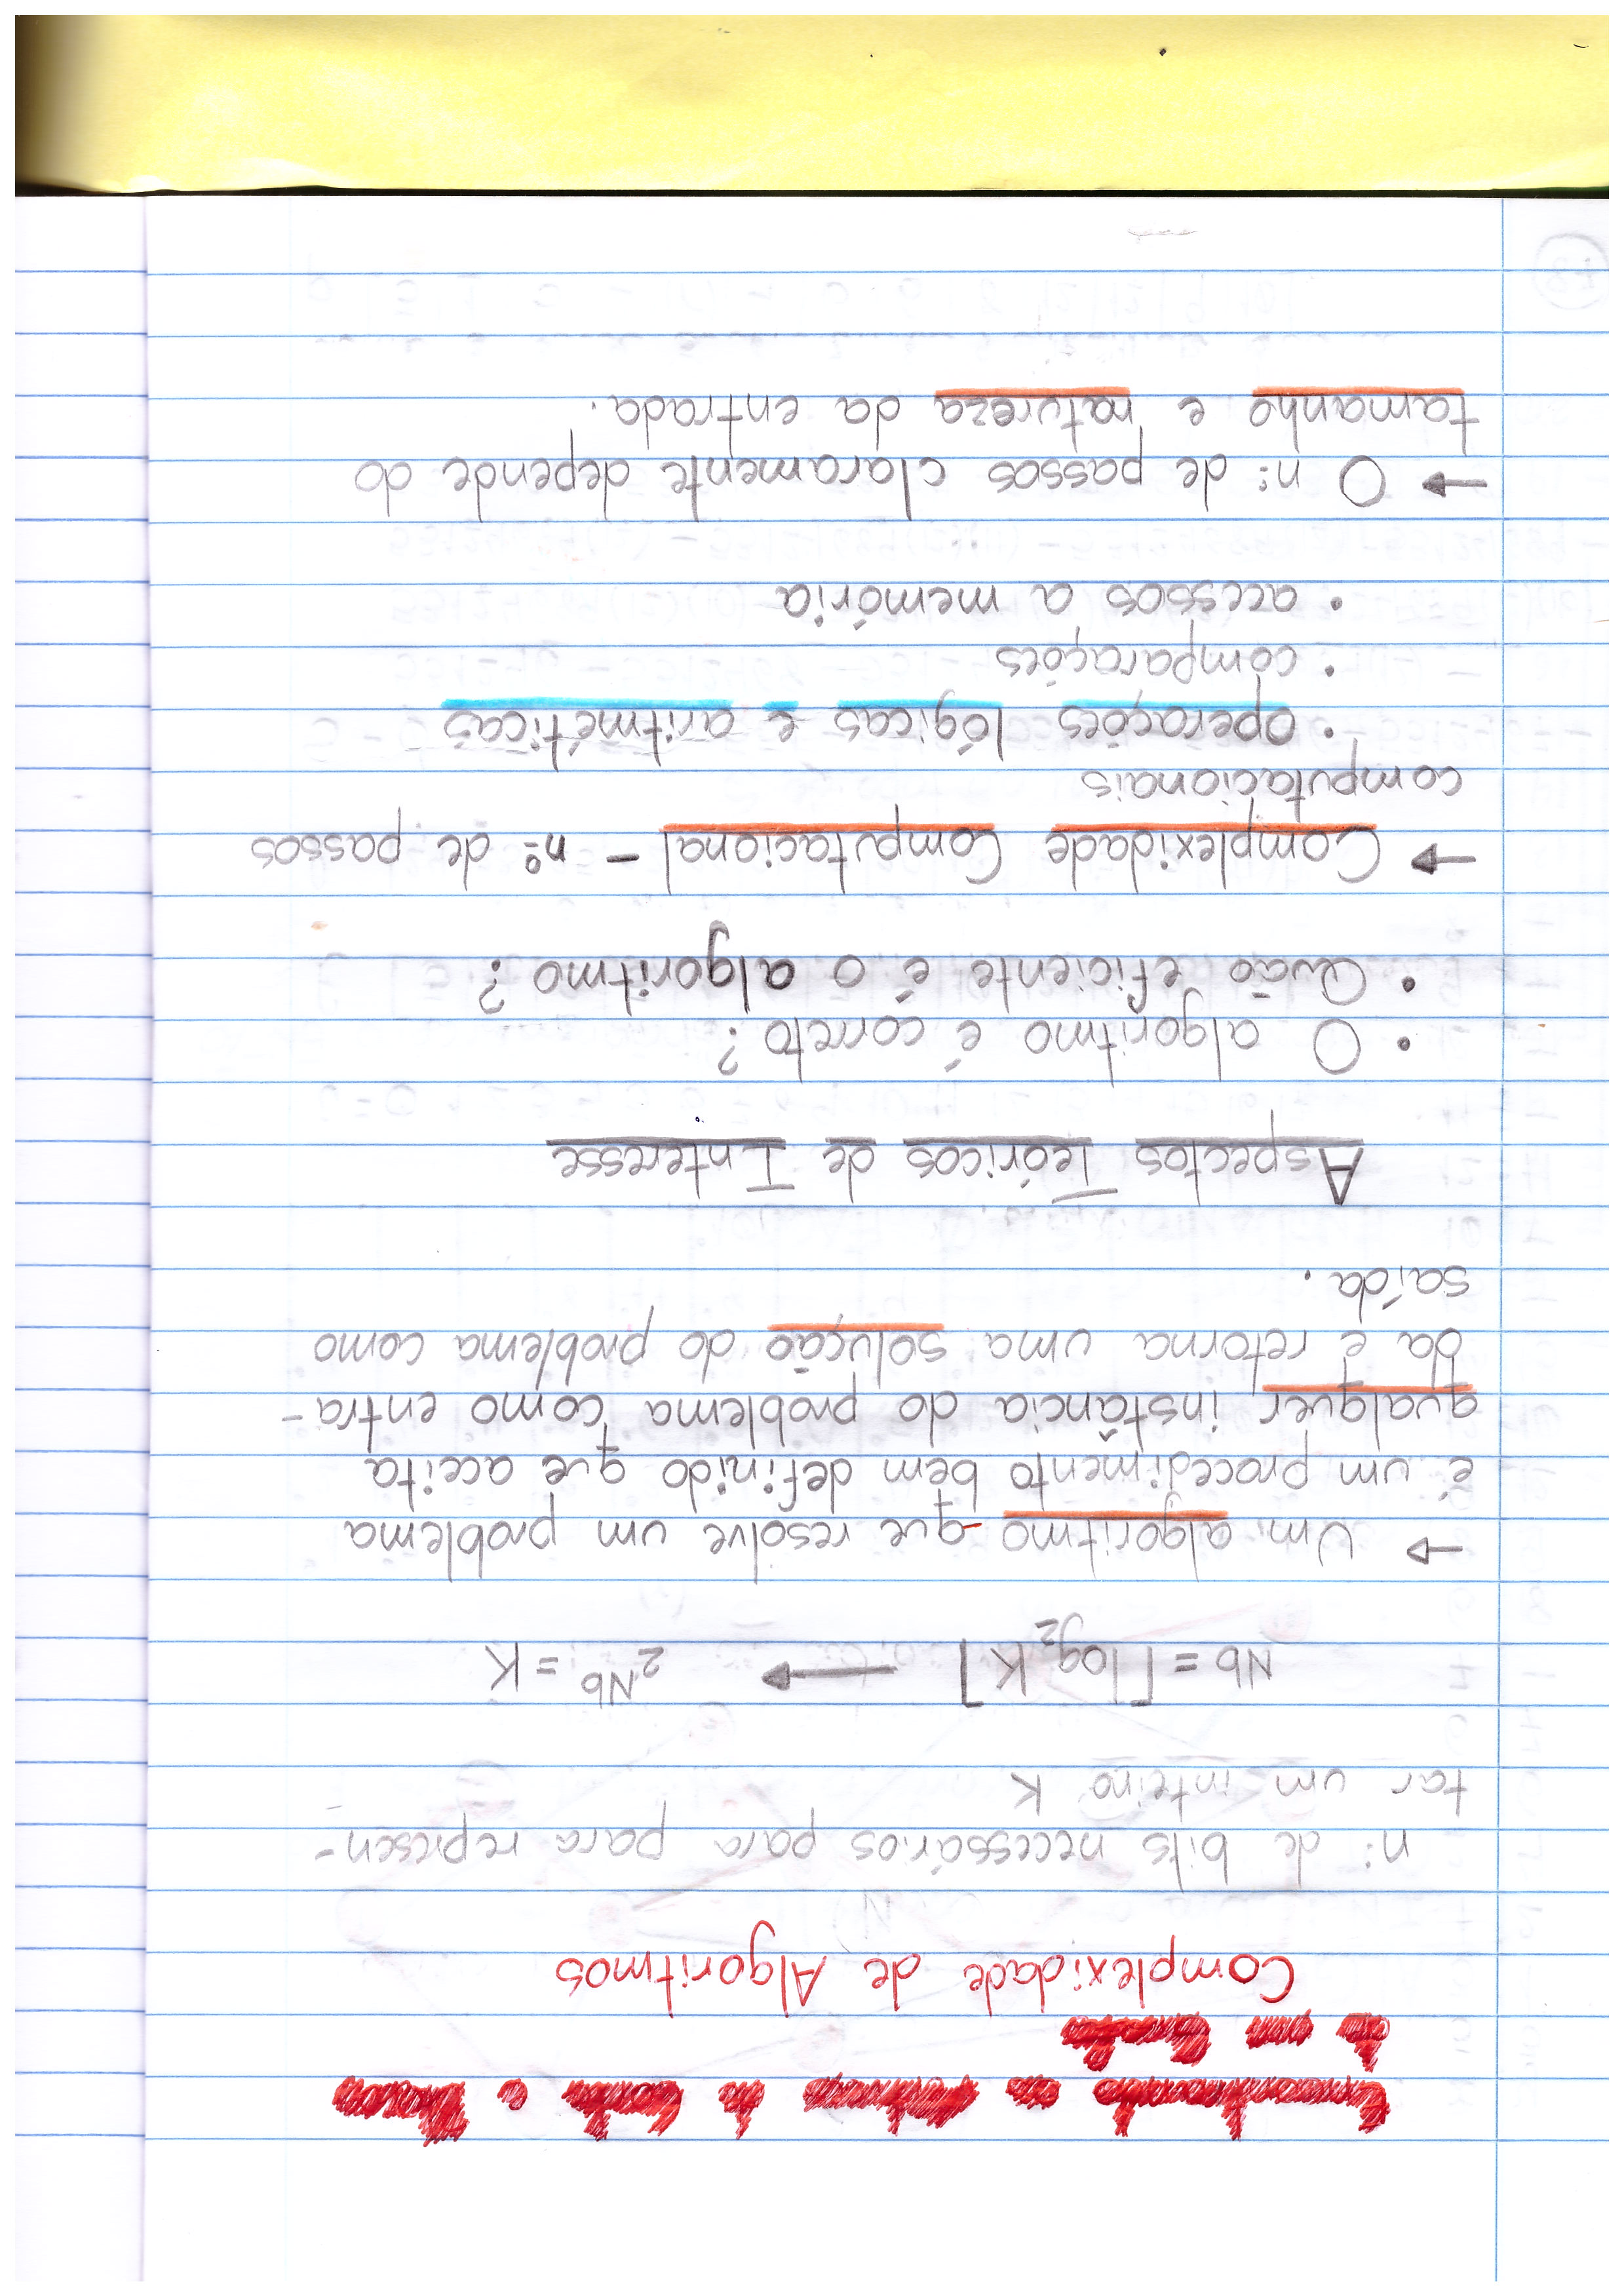 Complexidade de Algoritmos
nº de bits necessários para para represen-
tar um inteiro K
Nb = ⌈log₂K⌉ → 2^Nb = K
→ Um algoritmo que resolve um problema
é um procedimento bem definido que aceita
qualquer instância do problema como entra-
da e retorna uma solução do problema como
saída.
Aspectos Teóricos de Interesse
• O algoritmo é correto?
• Quão eficiente é o algoritmo?
→ Complexidade Computacional - nº de passos
computacionais
• operações lógicas e aritméticas
• comparações
• acessos a memória
→ O nº de passos claramente depende do
tamanho e natureza da entrada.